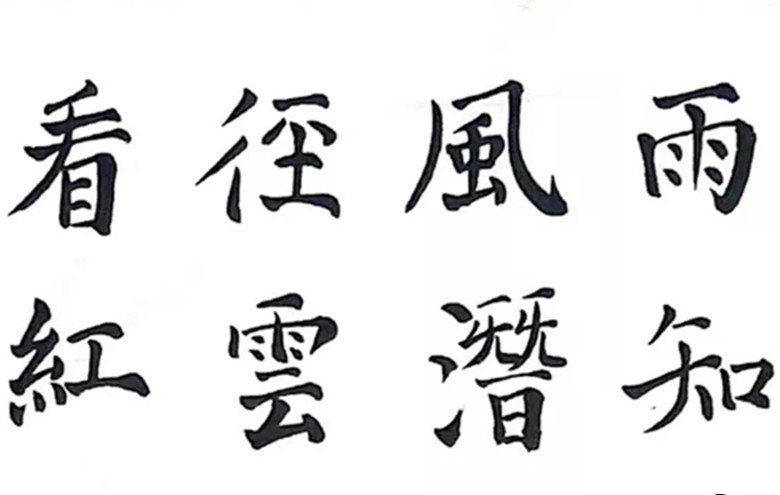 雨知
風潛
徑雲
看紅